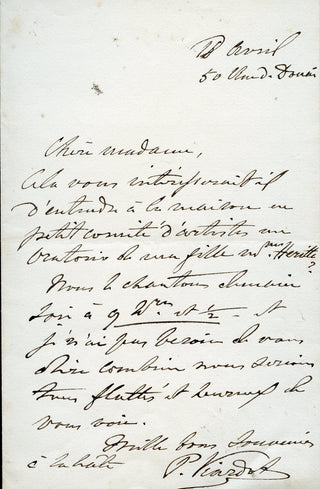 Avril
50 Rue de Douai
Chère madame,
Cela vous intéresserait il
d'entendre à la maison en
petit comité d'artistes un
Oratorio de ma fille Mme Heritte?
Nous le chantons demain
soir à 9 hres et ½ - et
je n'ai pas besoin de vous
dire combien nous serions
tous flattés et heureux de
vous voir.
Mille bons souvenirs
à la hâte P. Viardot